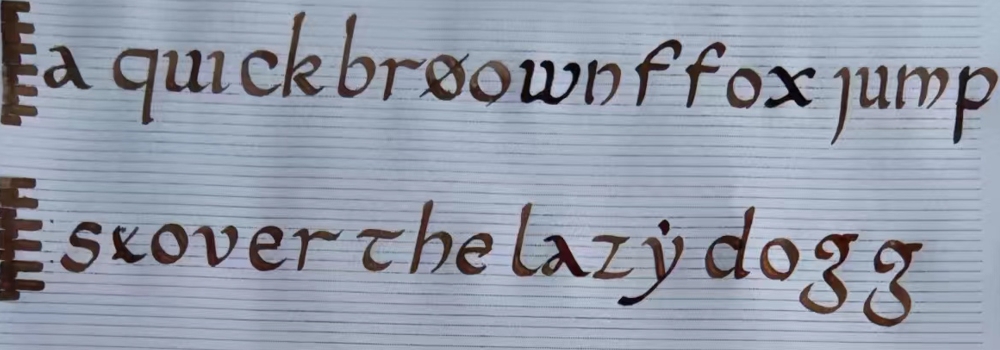 a quick brøown f fox jump
sxover the lazẏ dog g